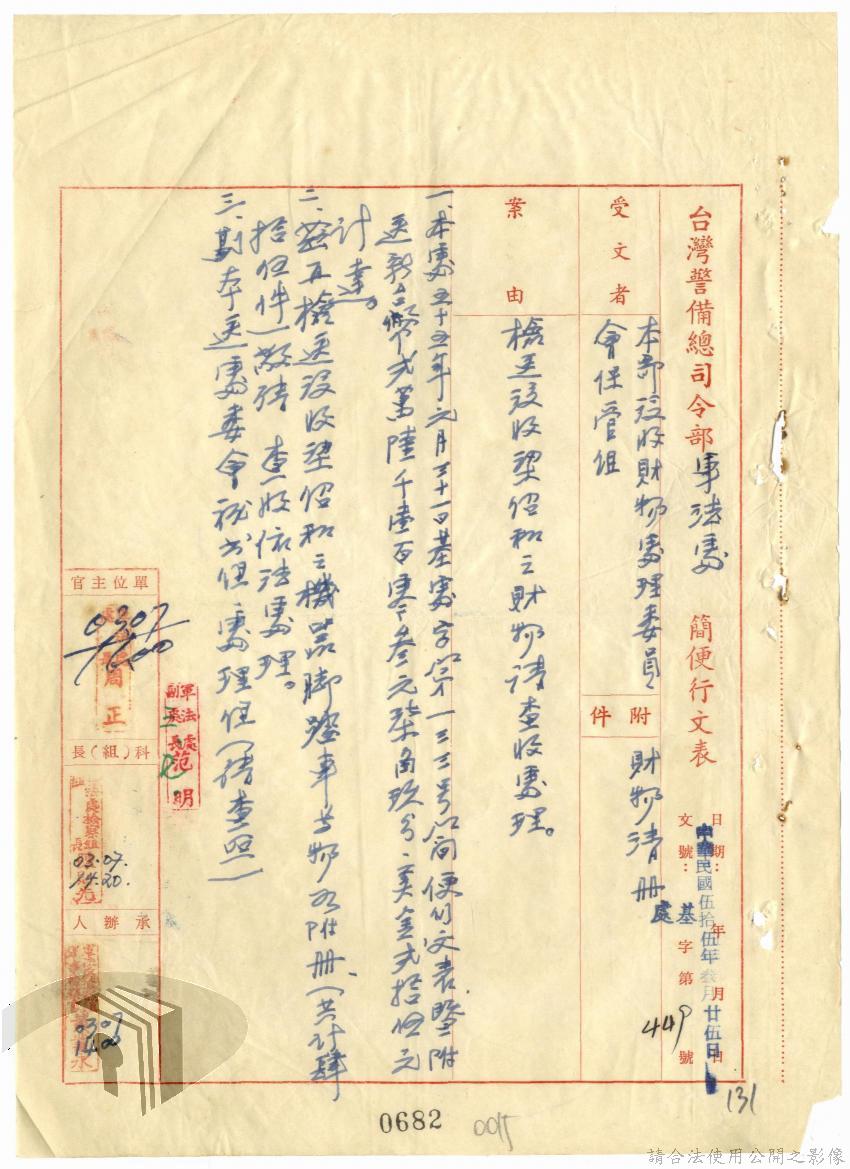 台灣警備總司令部軍法處 簡便行文表
日期：年 月 日
中華民國伍拾伍年叁月廿五日
文號：字第 號
基處 449
受文者
本部沒收財物處理委員
會保管組
附件
財物清冊
案由
檢送沒收梁紹和之財物請查收處理。
一、本處五十五年元月三十一日基處字第一三三號簡便行文表暨附
送新台幣弍萬陸千壹百零叁元柒角玖分、美金弍拾伍元
計達。
二、茲再檢送沒收梁紹和之機器腳踏車等物品附冊（共計肆
拾伍件）敬請 查收依法處理。
三、副本送處委會秘書組、處理組（請查照）
單位主官
周正
0307
1600
軍法處
副處長范明
科（組）長
法處檢察組
03.07.
14.20.
承辦人
0307
1400
131
0682
0015
請合法使用公開之影像